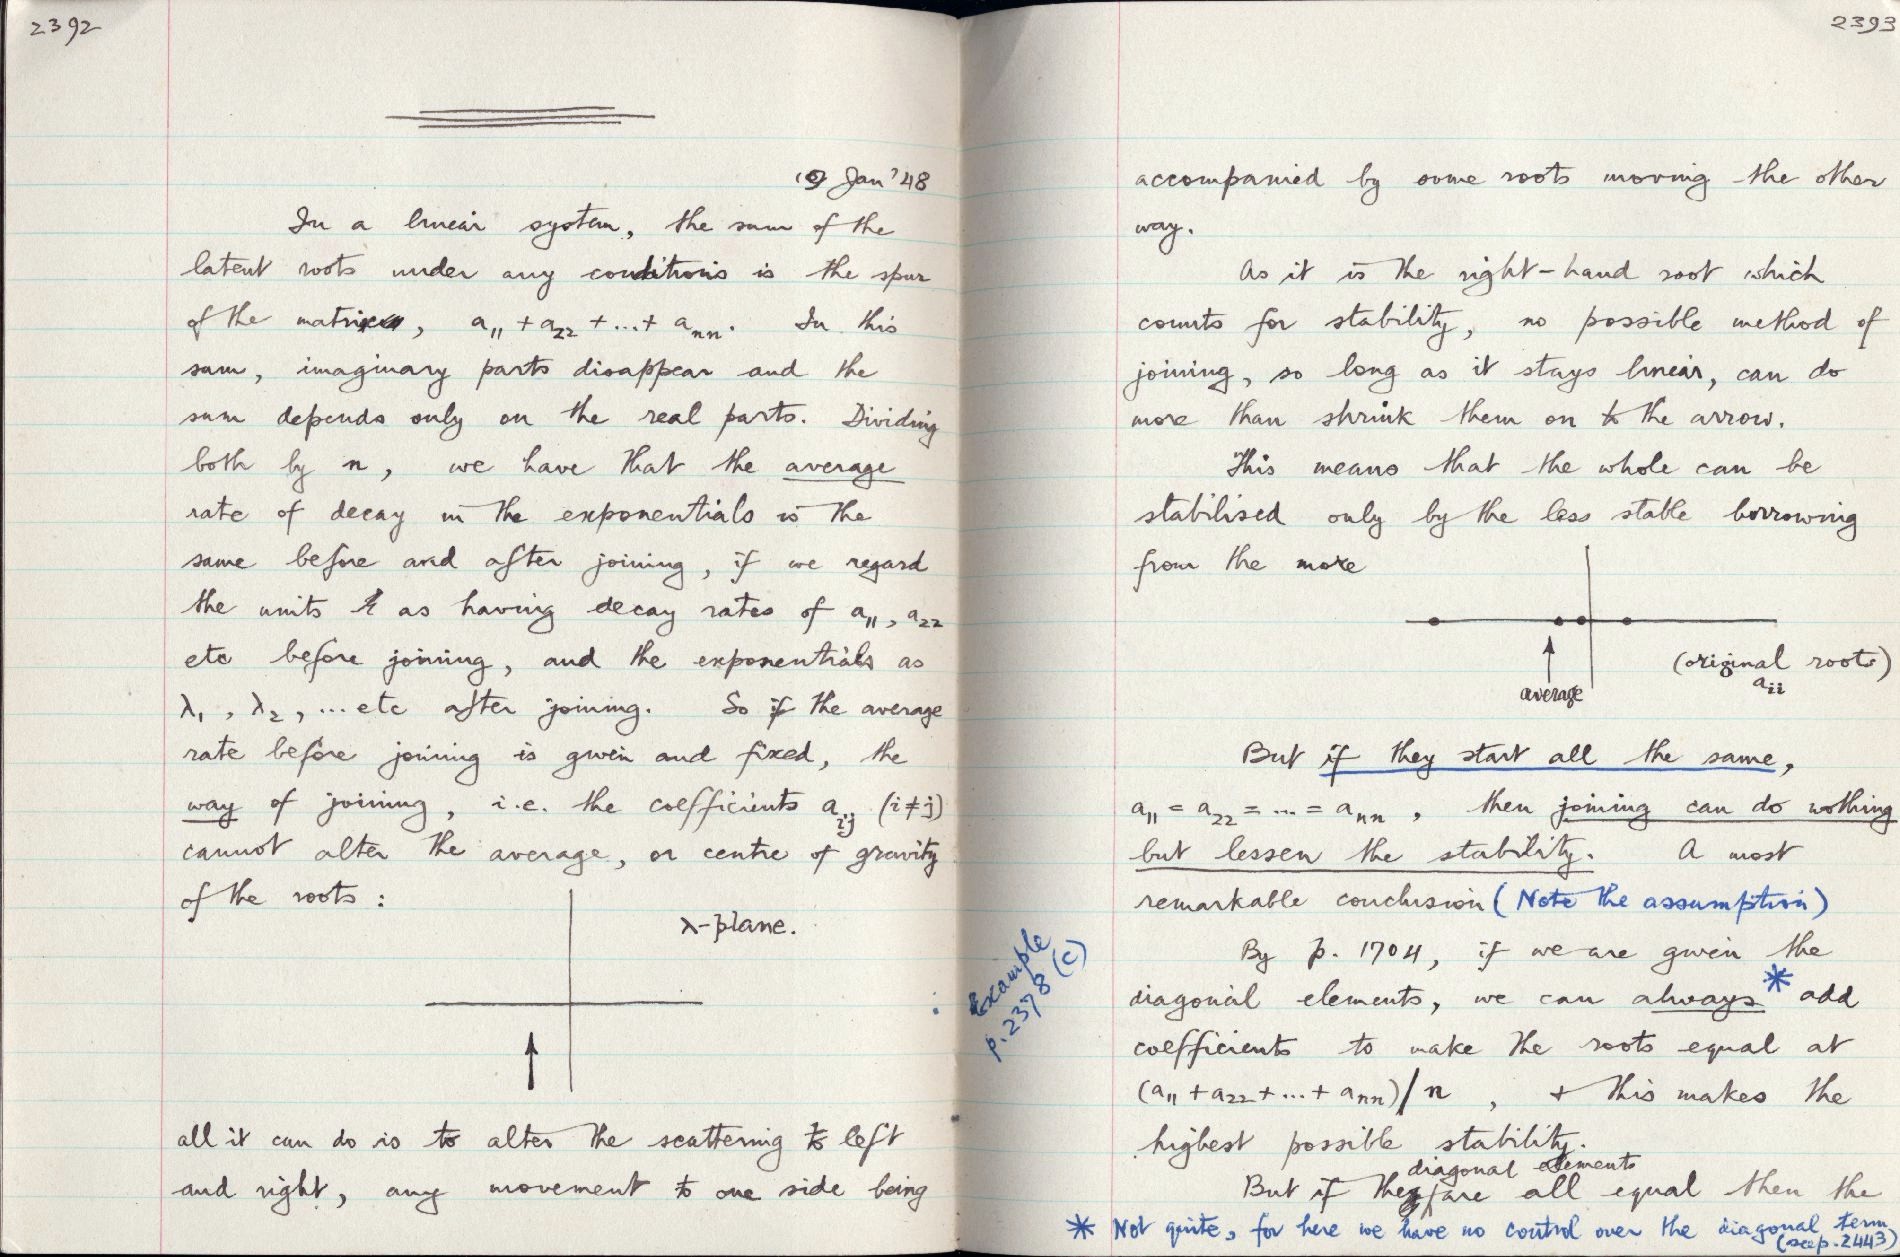 2392
Jan '48
In a linear system, the sum of the
latent roots under any conditions is the spur
of the matrix, a₁₁ + a₂₂ + ... + aₙₙ. In this
sum, imaginary parts disappear and the
sum depends only on the real parts. Dividing
both by n, we have that the average
rate of decay in the exponentials is the
same before and after joining, if we regard
the units as having decay rates of a₁₁, a₂₂
etc before joining, and the exponentials as
λ₁, λ₂, ... etc after joining. So if the average
rate before joining is given and fixed, the
way of joining, i.e. the coefficients aᵢⱼ (i≠j)
cannot alter the average, or centre of gravity
of the roots:
λ-plane.
all it can do is to alter the scattering to left
and right, any movement to one side being
2393
accompanied by some roots moving the other
way.
As it is the right-hand root which
counts for stability, no possible method of
joining, so long as it stays linear, can do
more than shrink them on to the arrow.
This means that the whole can be
stabilised only by the less stable borrowing
from the more
average
(original roots)
aᵢᵢ
But if they start all the same,
a₁₁ = a₂₂ = ... = aₙₙ, then joining can do nothing
but lessen the stability. A most
remarkable conclusion (Note the assumption)
Example
p. 2378 (c)
By p. 1704, if we are given the
diagonal elements, we can always * add
coefficients to make the roots equal at
(a₁₁ + a₂₂ + ... + aₙₙ)/n, + this makes the
highest possible stability.
diagonal elements
But if the are all equal then the
* Not quite, for here we have no control over the diagonal term
(see p. 2443)